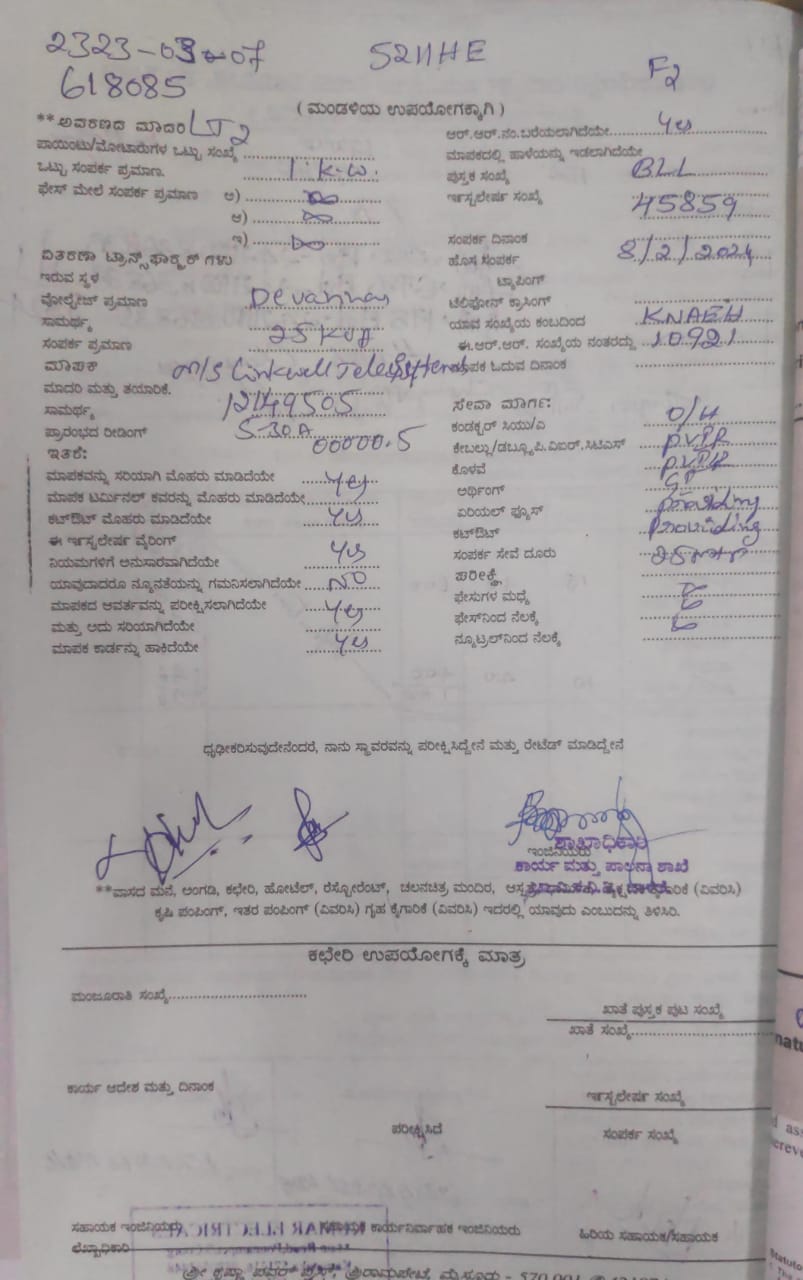 2323-03-07 5211HE F2
618085
( ಮಂಡಳಿಯ ಉಪಯೋಗಕ್ಕಾಗಿ )
**ಆವರಣದ ಮಾದರಿ LT2
ಪಾಯಿಂಟು/ಮೋಟಾರುಗಳ ಒಟ್ಟು ಸಂಖ್ಯೆ
ಒಟ್ಟು ಸಂಪರ್ಕ ಪ್ರಮಾಣ. 1 k.w.
ಫೇಸ್ ಮೇಲೆ ಸಂಪರ್ಕ ಪ್ರಮಾಣ ಅ)
ಆ)
ಇ)
ವಿತರಣಾ ಟ್ರಾನ್ಸ್‌ಫಾರ್ಮರ್‌ಗಳು
ಇರುವ ಸ್ಥಳ
ವೋಲ್ಟೇಜ್ ಪ್ರಮಾಣ Devanna
ಸಾಮರ್ಥ್ಯ 25 KVA
ಸಂಪರ್ಕ ಪ್ರಮಾಣ
ಮಾಪಕ M/S Linkwell
ಮಾದರಿ ಮತ್ತು ತಯಾರಿಕೆ.
ಸಾಮರ್ಥ್ಯ 12149505
ಪ್ರಾರಂಭದ ರೀಡಿಂಗ್ 5-30A 00000.5
ಇತರೆ:
ಮಾಪಕವನ್ನು ಸರಿಯಾಗಿ ಮೊಹರು ಮಾಡಿದೆಯೇ Yes
ಮಾಪಕ ಟರ್ಮಿನಲ್ ಕವರನ್ನು ಮೊಹರು ಮಾಡಿದೆಯೇ
ಕಟ್‌ಔಟ್ ಮೊಹರು ಮಾಡಿದೆಯೇ Yes
ಈ ಇನ್ಸ್ಟಲೇಷನ್ ವೈರಿಂಗ್
ನಿಯಮಗಳಿಗೆ ಅನುಸಾರವಾಗಿದೆಯೇ Yes
ಯಾವುದಾದರೂ ನ್ಯೂನತೆಯನ್ನು ಗಮನಿಸಲಾಗಿದೆಯೇ NO
ಮಾಪಕದ ಆವರ್ತವನ್ನು ಪರೀಕ್ಷಿಸಲಾಗಿದೆಯೇ Yes
ಮತ್ತು ಅದು ಸರಿಯಾಗಿದೆಯೇ
ಮಾಪಕ ಕಾರ್ಡನ್ನು ಹಾಕಿದೆಯೇ Yes
ಆರ್.ಆರ್.ನಂ.ಬರೆಯಲಾಗಿದೆಯೇ Yes
ಮಾಪಕದಲ್ಲಿ ಹಾಳೆಯನ್ನು ಇಡಲಾಗಿದೆಯೇ
ಪುಸ್ತಕ ಸಂಖ್ಯೆ BLL
ಇನ್ಸ್ಟಲೇಷನ್ ಸಂಖ್ಯೆ 45859
ಸಂಪರ್ಕ ದಿನಾಂಕ 8/2/2024
ಹೊಸ ಸಂಪರ್ಕ
ಟ್ಯಾಪಿಂಗ್
ಟೆಲಿಫೋನ್ ಕ್ರಾಸಿಂಗ್
ಯಾವ ಸಂಖ್ಯೆಯ ಕಂಬದಿಂದ KNAEH
ಈ.ಆರ್.ಆರ್. ಸಂಖ್ಯೆಯ ನಂತರದ್ದು 10921
ಮಾಪಕ ಓದುವ ದಿನಾಂಕ
ಸೇವಾ ಮಾರ್ಗ:
ಕಂಡಕ್ಟರ್ ಸಿಯು/ಎ O/H
ಕೇಬಲ್ಲು/ಡಬ್ಲ್ಯೂ.ಪಿ.ವಿಐಆರ್.ಸಿಟಿಎಸ್
ಕೊಳವೆ
ಅರ್ಥಿಂಗ್
ಏರಿಯಲ್ ಫ್ಯೂಸ್ Providing
ಕಟ್‌ಔಟ್ Providing
ಸಂಪರ್ಕ ಸೇವೆ ದೂರು
ಪರೀಕ್ಷೆ
ಫೇಸುಗಳ ಮಧ್ಯೆ
ಫೇಸ್‌ನಿಂದ ನೆಲಕ್ಕೆ
ನ್ಯೂಟ್ರಲ್‌ನಿಂದ ನೆಲಕ್ಕೆ
ಧೃಢೀಕರಿಸುವುದೇನೆಂದರೆ, ನಾನು ಸ್ಥಾವರವನ್ನು ಪರೀಕ್ಷಿಸಿದ್ದೇನೆ ಮತ್ತು ರೇಟೆಡ್ ಮಾಡಿದ್ದೇನೆ
ಶಾಖಾಧಿಕಾರಿ
ಇಂಜಿನಿಯರು
ಕಾರ್ಯ ಮತ್ತು ಪಾಲನಾ ಶಾಖೆ
**ವಾಸದ ಮನೆ, ಅಂಗಡಿ, ಕಛೇರಿ, ಹೋಟೆಲ್, ರೆಸ್ಟೋರೆಂಟ್, ಚಲನಚಿತ್ರ ಮಂದಿರ, (ವಿವರಿಸಿ)
ಕೃಷಿ ಪಂಪಿಂಗ್, ಇತರ ಪಂಪಿಂಗ್ (ವಿವರಿಸಿ) ಗೃಹ ಕೈಗಾರಿಕೆ (ವಿವರಿಸಿ) ಇದರಲ್ಲಿ ಯಾವುದು ಎಂಬುದನ್ನು ತಿಳಿಸಿರಿ.
ಕಛೇರಿ ಉಪಯೋಗಕ್ಕೆ ಮಾತ್ರ
ಮಂಜೂರಾತಿ ಸಂಖ್ಯೆ
ಖಾತೆ ಪುಸ್ತಕ ಪುಟ ಸಂಖ್ಯೆ
ಖಾತೆ ಸಂಖ್ಯೆ
ಕಾರ್ಯ ಆದೇಶ ಮತ್ತು ದಿನಾಂಕ
ಇನ್ಸ್ಟಲೇಷನ್ ಸಂಖ್ಯೆ
ಪರೀಕ್ಷಿಸಿದೆ ಸಂಪರ್ಕ ಸಂಖ್ಯೆ
ಸಹಾಯಕ ಇಂಜಿನಿಯರು ಸಹಾಯಕ ಕಾರ್ಯನಿರ್ವಾಹಕ ಇಂಜಿನಿಯರು ಹಿರಿಯ ಸಹಾಯಕ/ಸಹಾಯಕ
ಲೆಖ್ಖಾಧಿಕಾರಿ